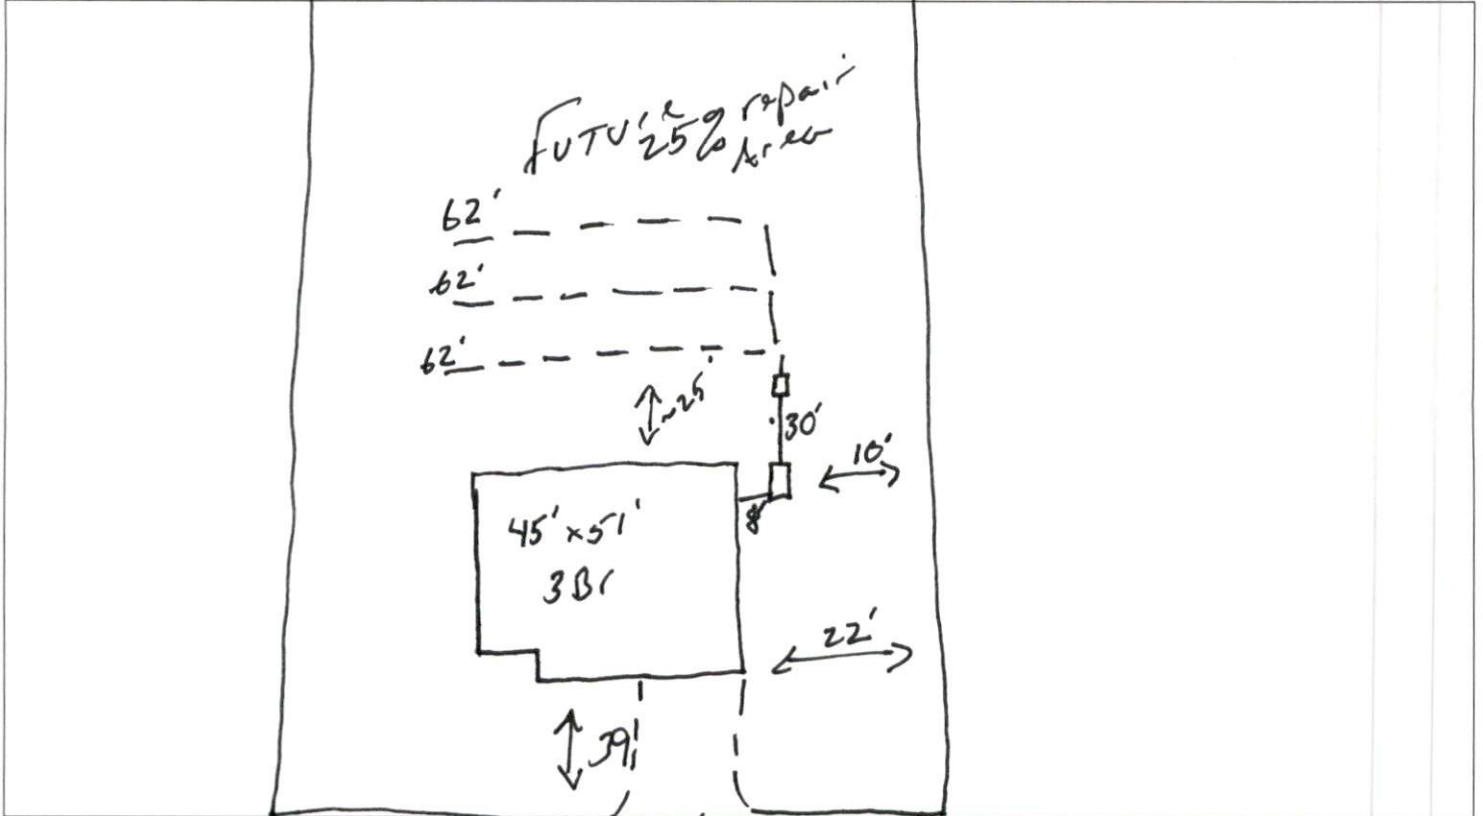 Future repair
25% Area
62'
62'
62'
~25'
30'
10'
8'
45' x 51'
3 Br
22'
39'